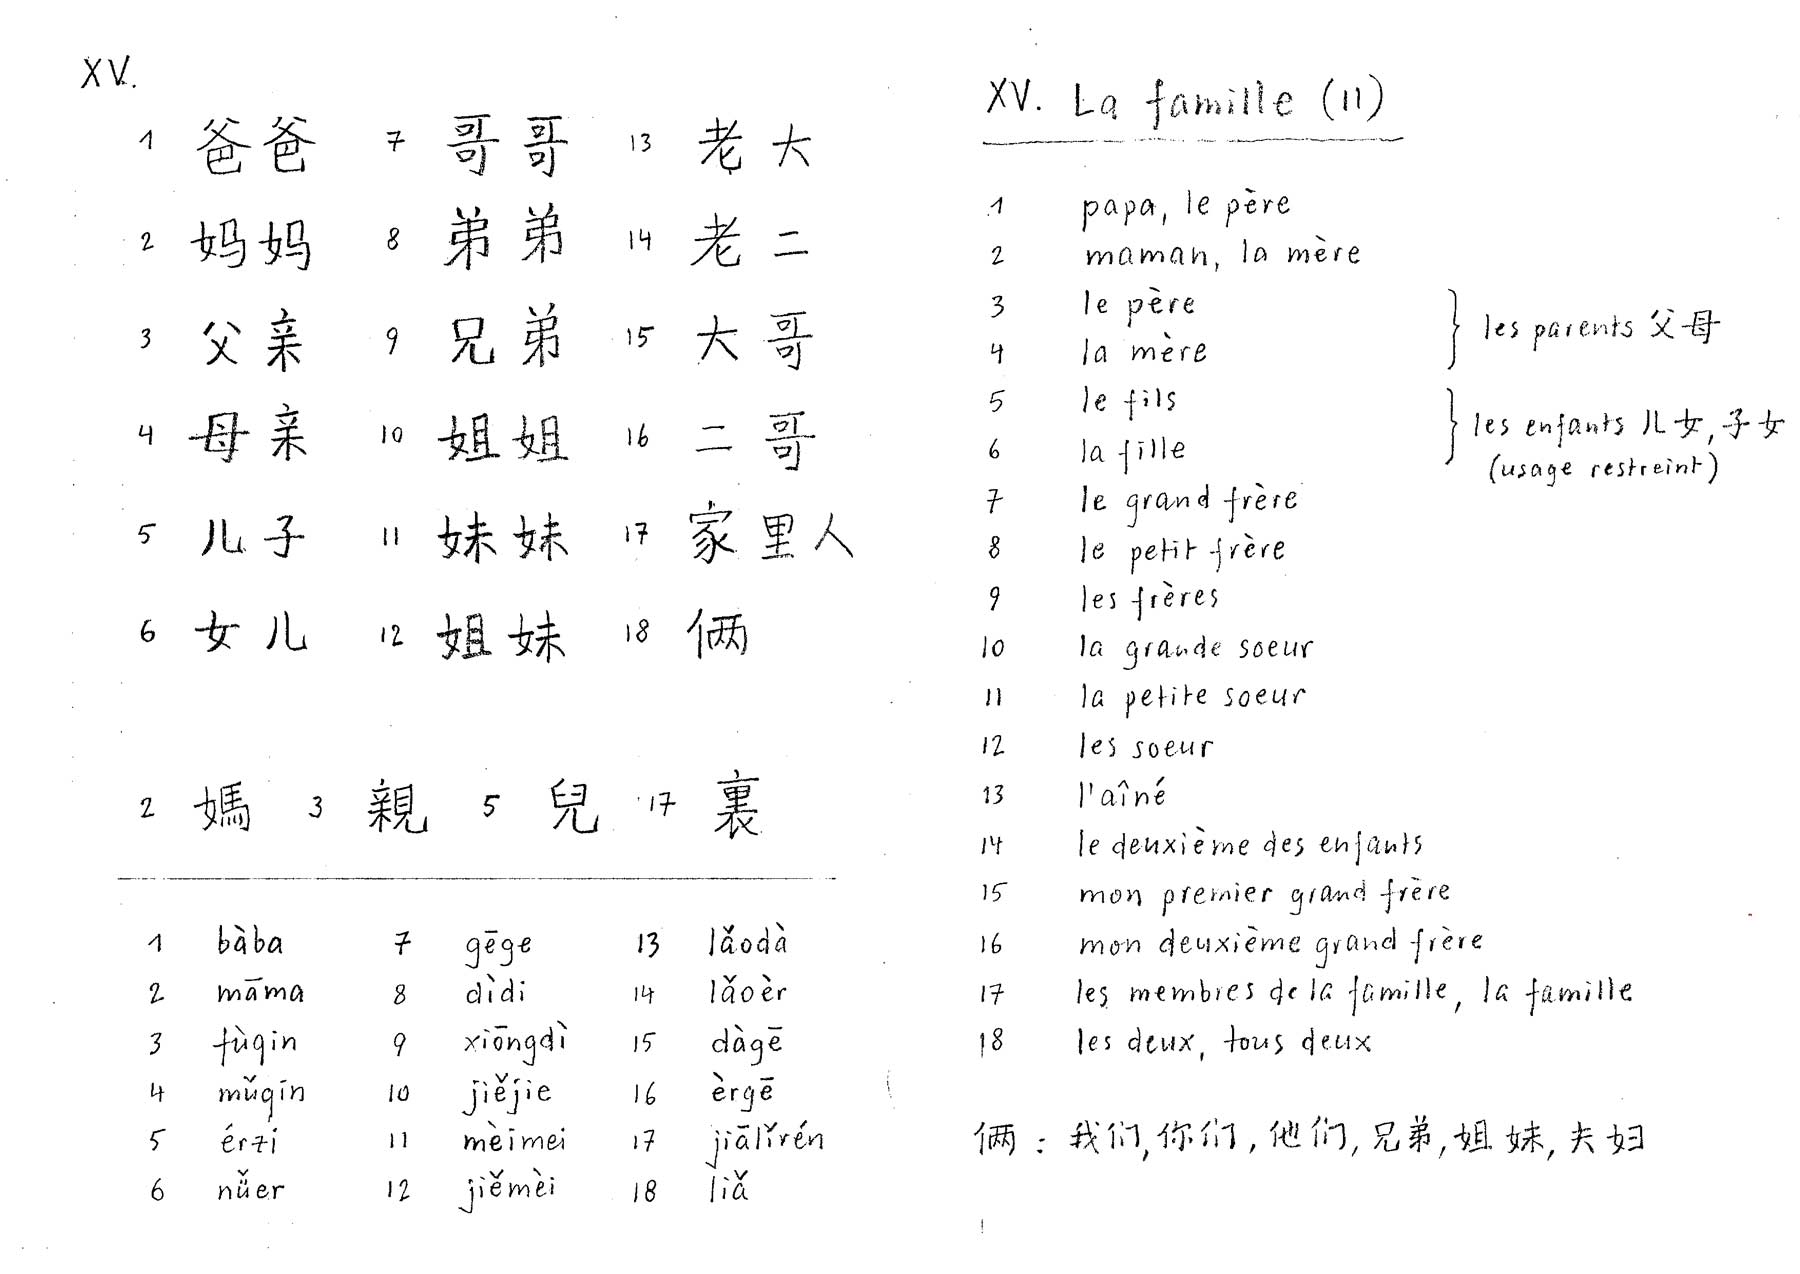 XV.
1 爸爸 7 哥哥 13 老大
2 妈妈 8 弟弟 14 老二
3 父亲 9 兄弟 15 大哥
4 母亲 10 姐姐 16 二哥
5 儿子 11 妹妹 17 家里人
6 女儿 12 姐妹 18 俩
2 媽 3 親 5 兒 17 裏
1 bàba 7 gēge 13 lǎodà
2 māma 8 dìdi 14 lǎoèr
3 fùqin 9 xiōngdì 15 dàgē
4 mǔqin 10 jiějie 16 èrgē
5 érzi 11 mèimei 17 jiālǐrén
6 nǚer 12 jiěmèi 18 liǎ
XV. La famille (II)
1 papa, le père
2 maman, la mère
3 le père
les parents 父母
4 la mère
5 le fils
les enfants 儿女, 子女
6 la fille
(usage restreint)
7 le grand frère
8 le petit frère
9 les frères
10 la grande soeur
11 la petite soeur
12 les soeur
13 l'aîné
14 le deuxième des enfants
15 mon premier grand frère
16 mon deuxième grand frère
17 les membres de la famille, la famille
18 les deux, tous deux
俩 : 我们, 你们, 他们, 兄弟, 姐妹, 夫妇